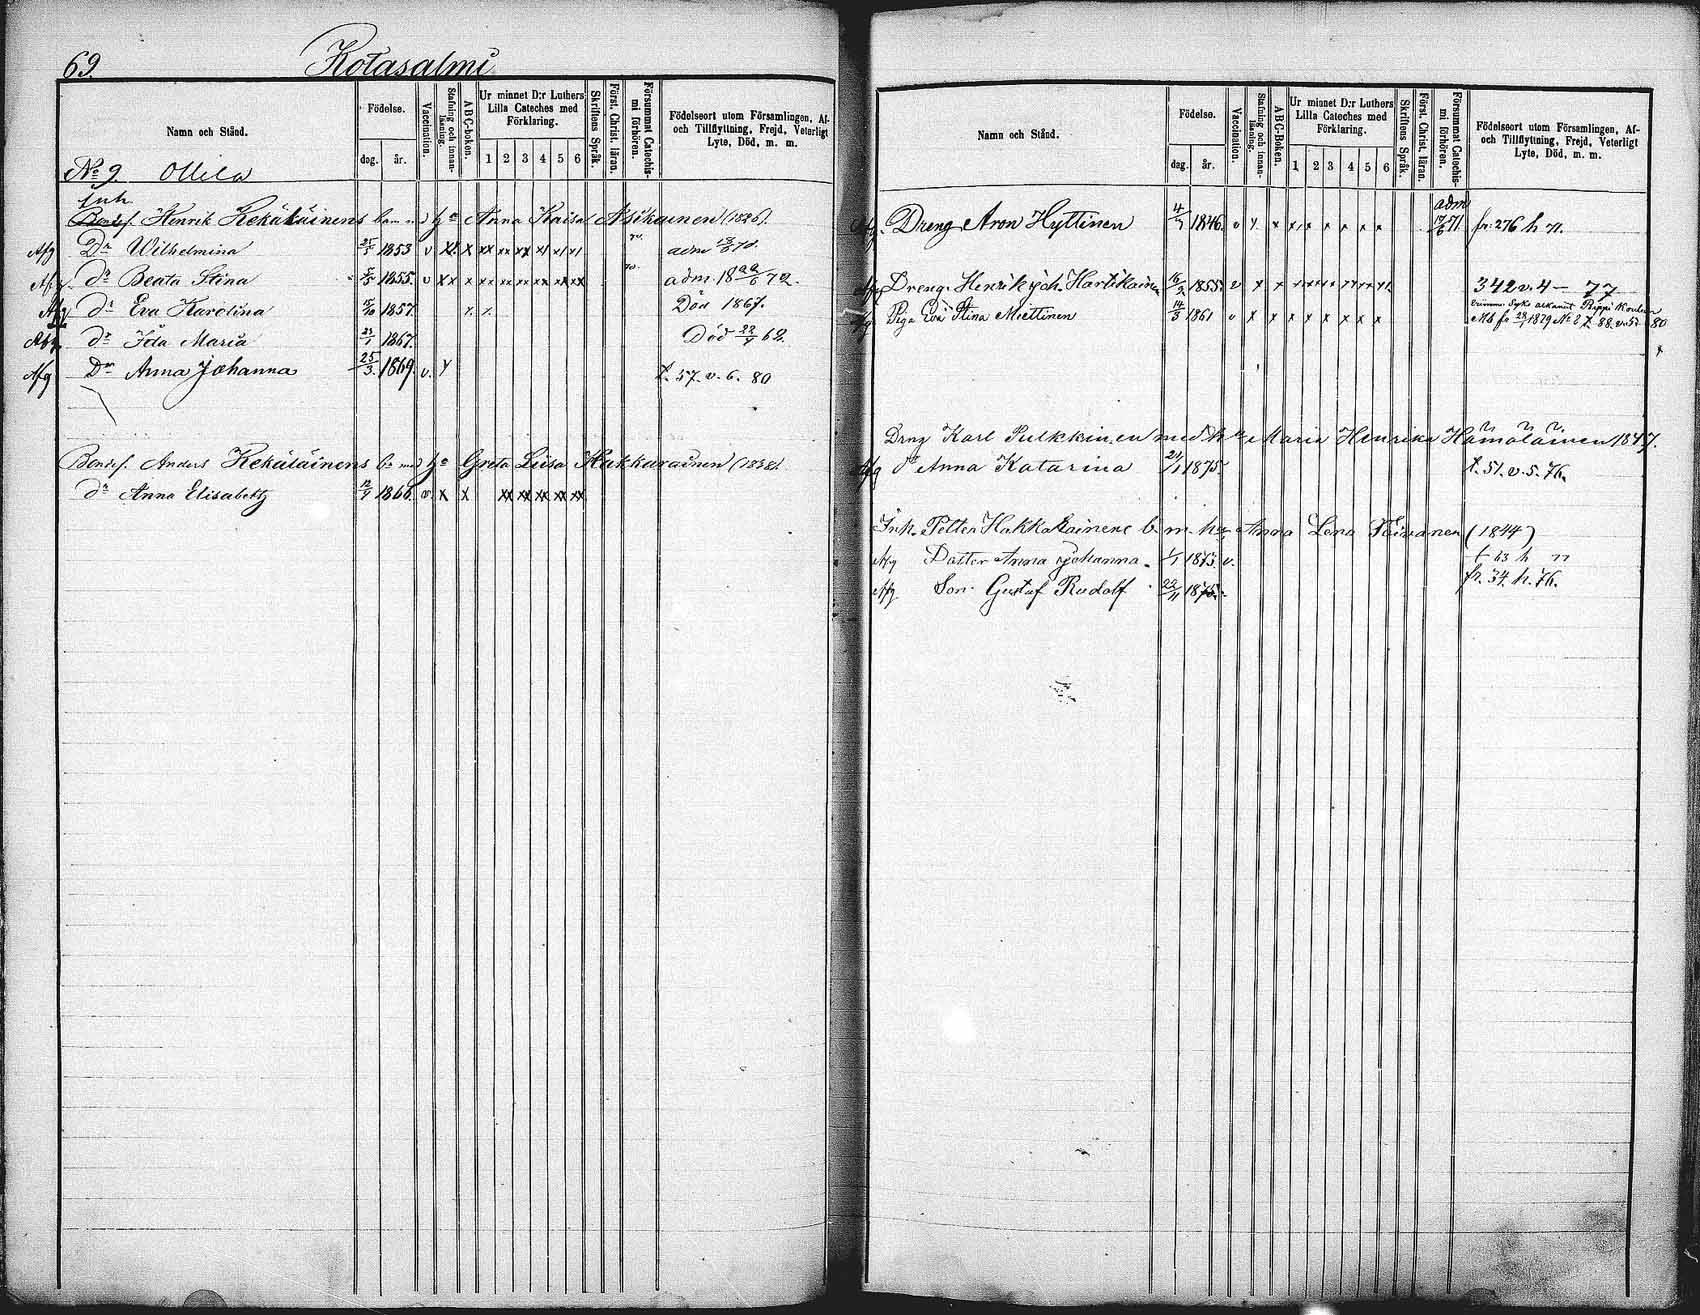 69. Kotasalmi
Namn och Stånd.
Födelse.
dag. år.
Vaccination.
Stafning och innanläsning.
ABC-boken.
Ur minnet D:r Luthers Lilla Cateches med Förklaring.
1 2 3 4 5 6
Skriftens Språk.
Först. Christ. läran.
Försummat Catechismi förhören.
Födelseort utom Församlingen, Af- och Tillflyttning, Frejd, Veterligt Lyte, Död, m. m.
No 9 Ollila
Inh.
Bondes. Henrik Kekäläinens barn med Anna Kaisa Asikainen (1826).
Afg Dr Wilhelmina 1853 v x x adm
dr Beata Stina 1855. v xx x adm. 18 72.
Afg dr Eva Karolina 1857. x x Död 1867.
dr Ida Maria 23/1 1867. Död 68.
Afg Dr Anna Johanna 25/3 1869. v. t. 57. v. 6. 80
Bondes. Anders Kekäläinens bn med Greta Liisa Hakkarainen (1838).
dr Anna Elisabeth 1866. v. x x xx xx xx xx xx
Namn och Stånd.
Födelse.
dag. år.
Vaccination.
Stafning och innanläsning.
ABC-Boken.
Ur minnet D:r Luthers Lilla Cateches med Förklaring.
1 2 3 4 5 6
Skriftens Språk.
Först. Christ. läran.
Försummat Catechismi förhören.
Födelseort utom Församlingen, Af- och Tillflyttning, Frejd, Veterligt Lyte, Död, m. m.
Dreng Aron Hyttinen 1846. v x x x x x x x adm 71 fr. 276 h 71.
Dreng Henrik Joh. Hartikainen 16/2 1855. v x x 342 v. 4 – 77
Piga Eva Stina Miettinen 14/3 1861 v x x x x x x x x 1879 No 2 t. 88. 80
Drng Karl Pulkkinen med h Maria Henrika Hämäläinen 1847.
Afg dr Anna Katarina 1875. t. 51. v. 5. 76.
Inh. Petter Hakkarainens b. m. hu. Anna Lena Toivanen (1844)
Afg Dotter Anna Johanna. 1/1 1873. v. t 63 h 77
Afg Son Gustaf Rudolf 22/11 1875. fr. 34. h. 76.